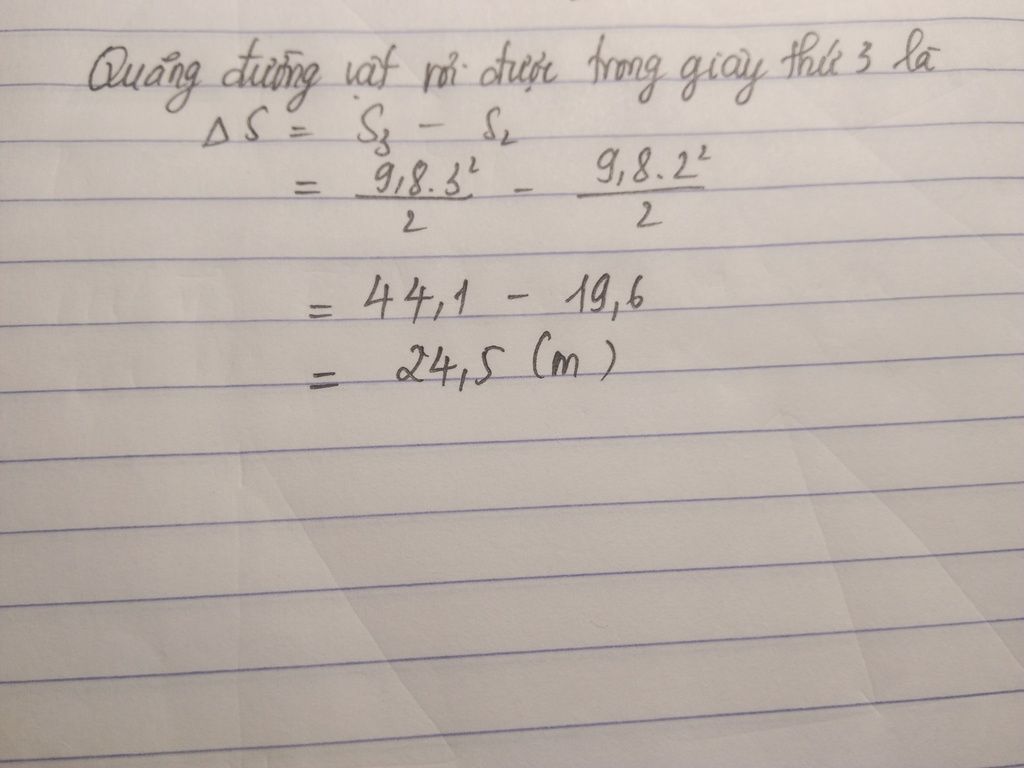 Quãng đường vật rơi được trong giây thứ 3 là
Δ S = S₃ - S₂
= 9,8.3²/2 - 9,8.2²/2
= 44,1 - 19,6
= 24,5 (m)